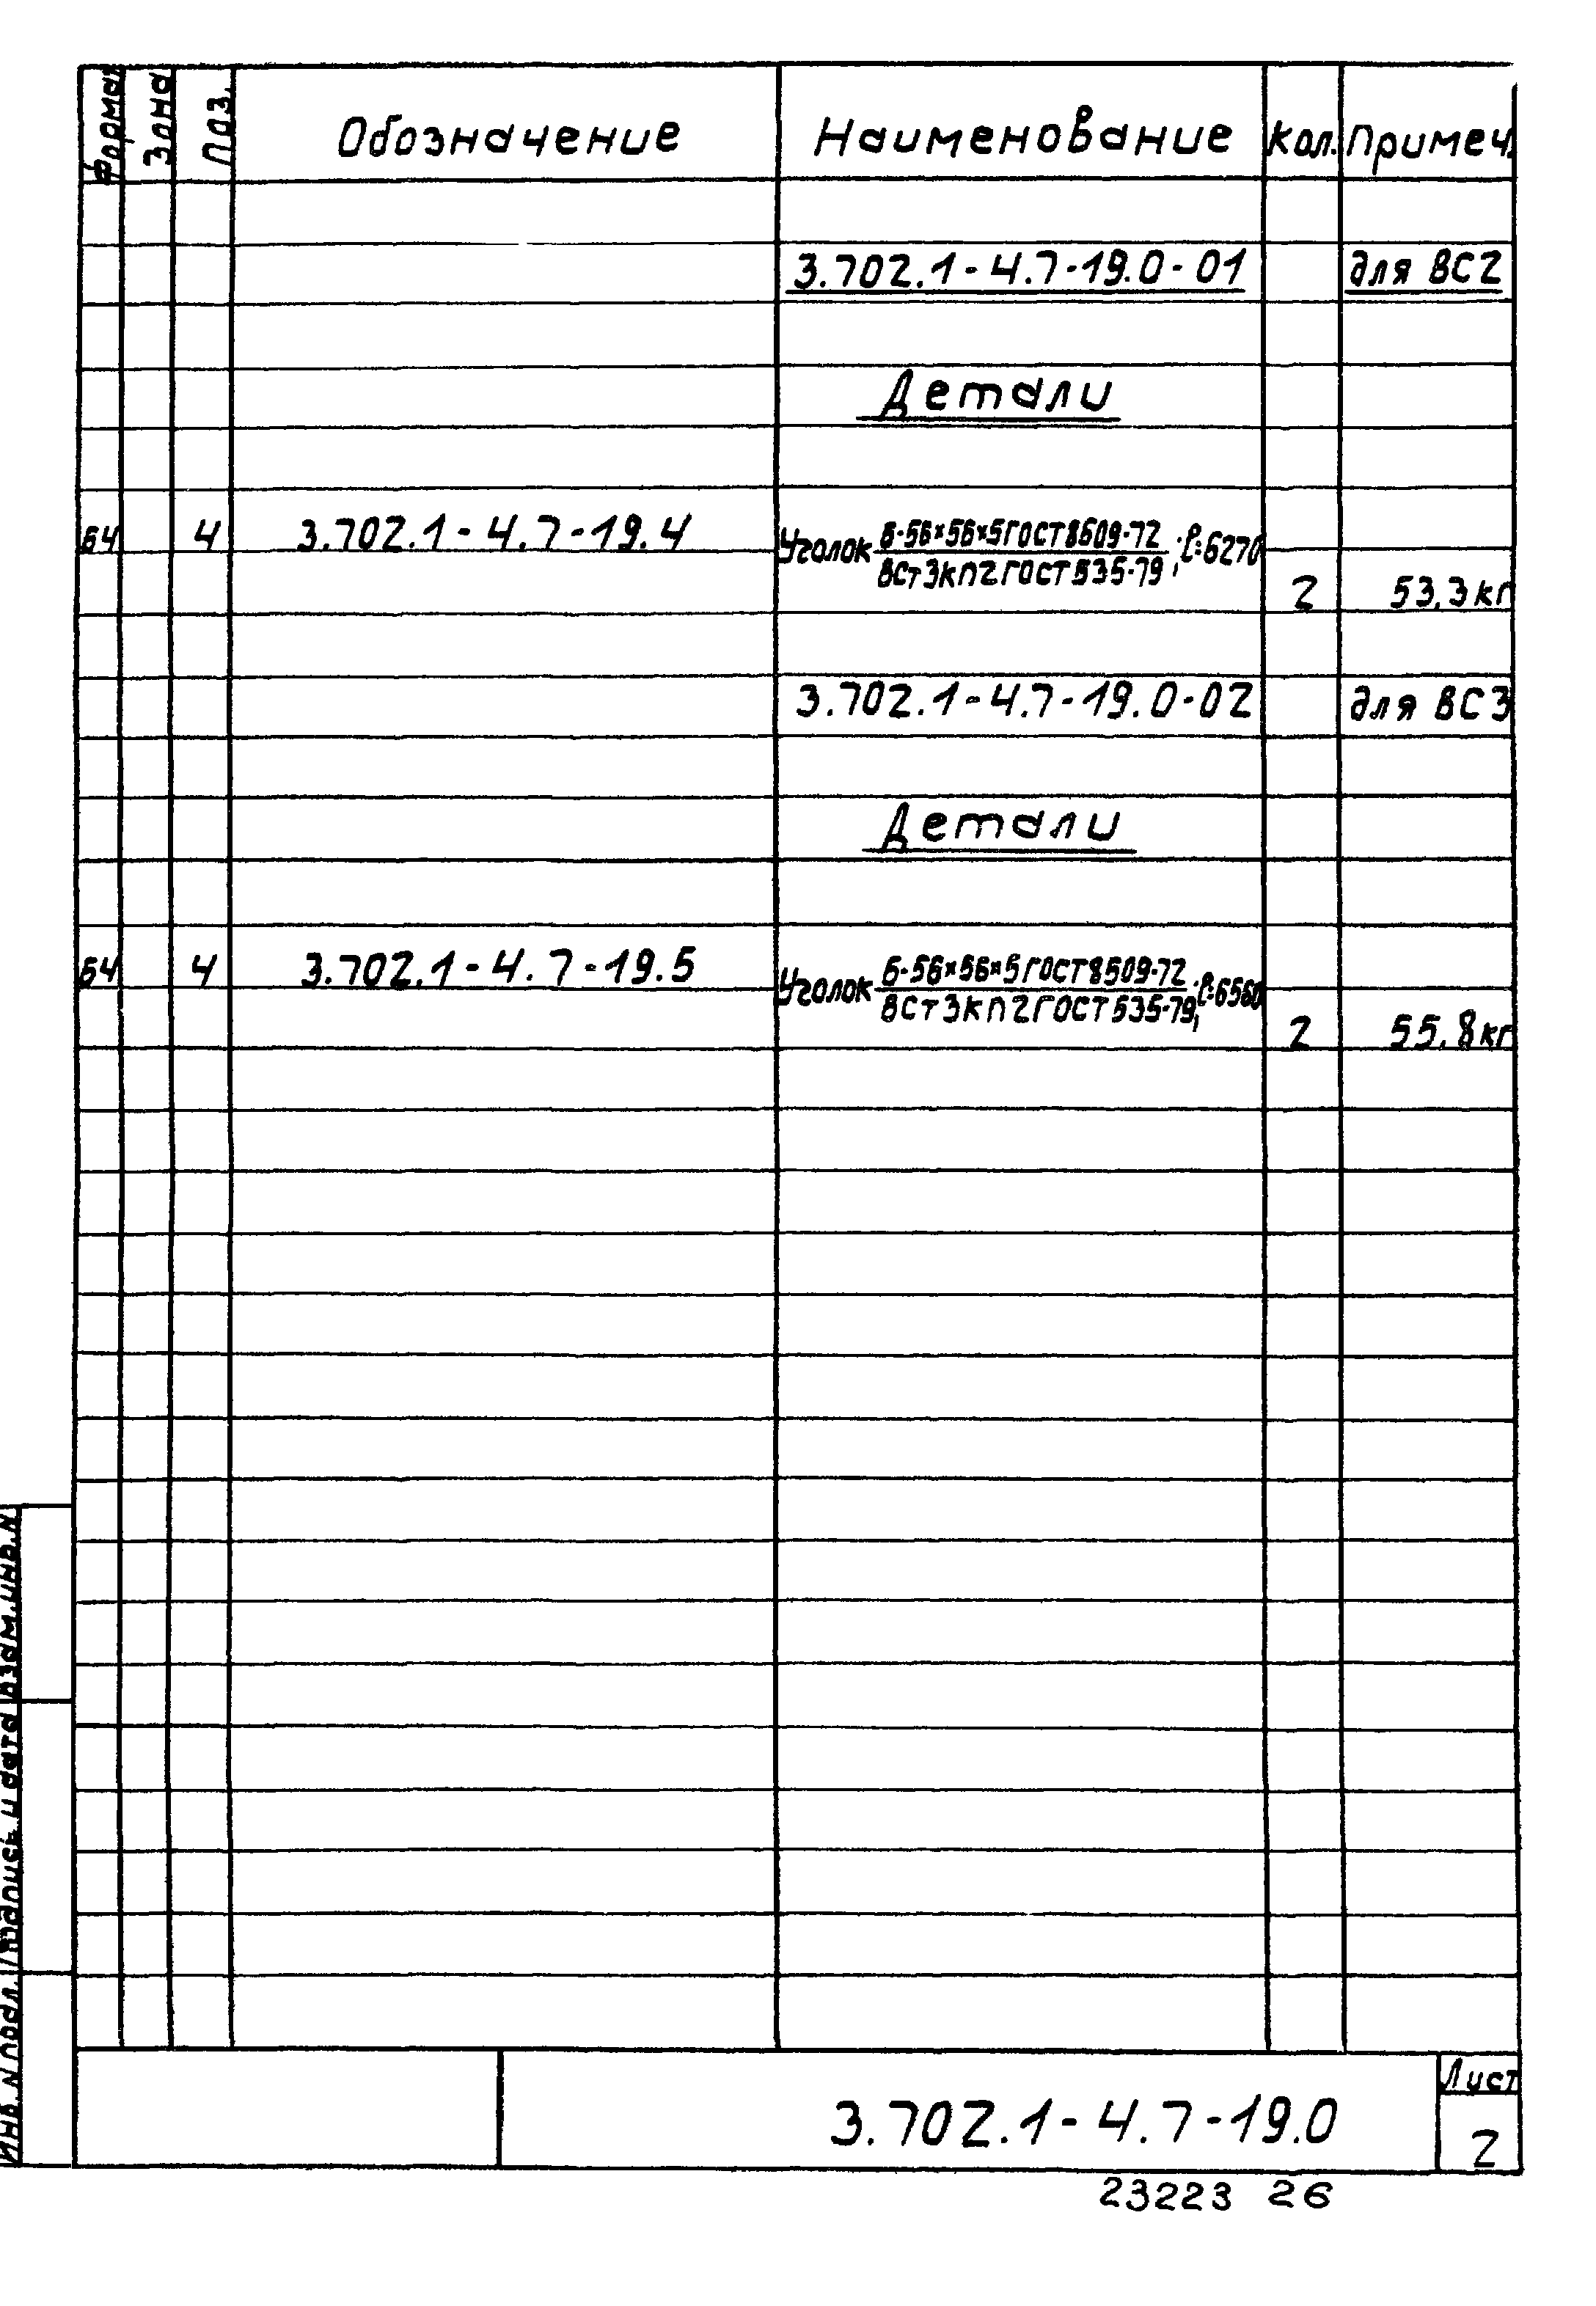 Формат Зона Поз. Обозначение Наименование Кол. Примеч.
3.702.1-4.7-19.0-01 для ВС2
Детали
Б4 4 3.702.1-4.7-19.4 Уголок Б-56×56×5 ГОСТ 8509-72 / ВСт3кп2 ГОСТ 535-79, ℓ=6270
2 53,3кг
3.702.1-4.7-19.0-02 для ВС3
Детали
Б4 4 3.702.1-4.7-19.5 Уголок Б-56×56×5 ГОСТ 8509-72 / ВСт3кп2 ГОСТ 535-79, ℓ=6560
2 55,8кг
Инв. N подл. Подпись и дата Взам. инв. N
3.702.1-4.7-19.0
Лист
2
23223 26